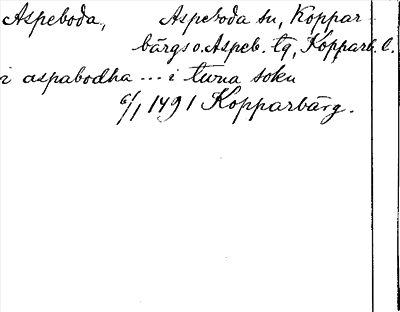 Aspeboda, Aspeboda sn, Koppar
bärgs o. Aspeb. tg, Kopparb. l.
i aspabodha ... i tuna sokn
6/1 1491 Kopparbärg.